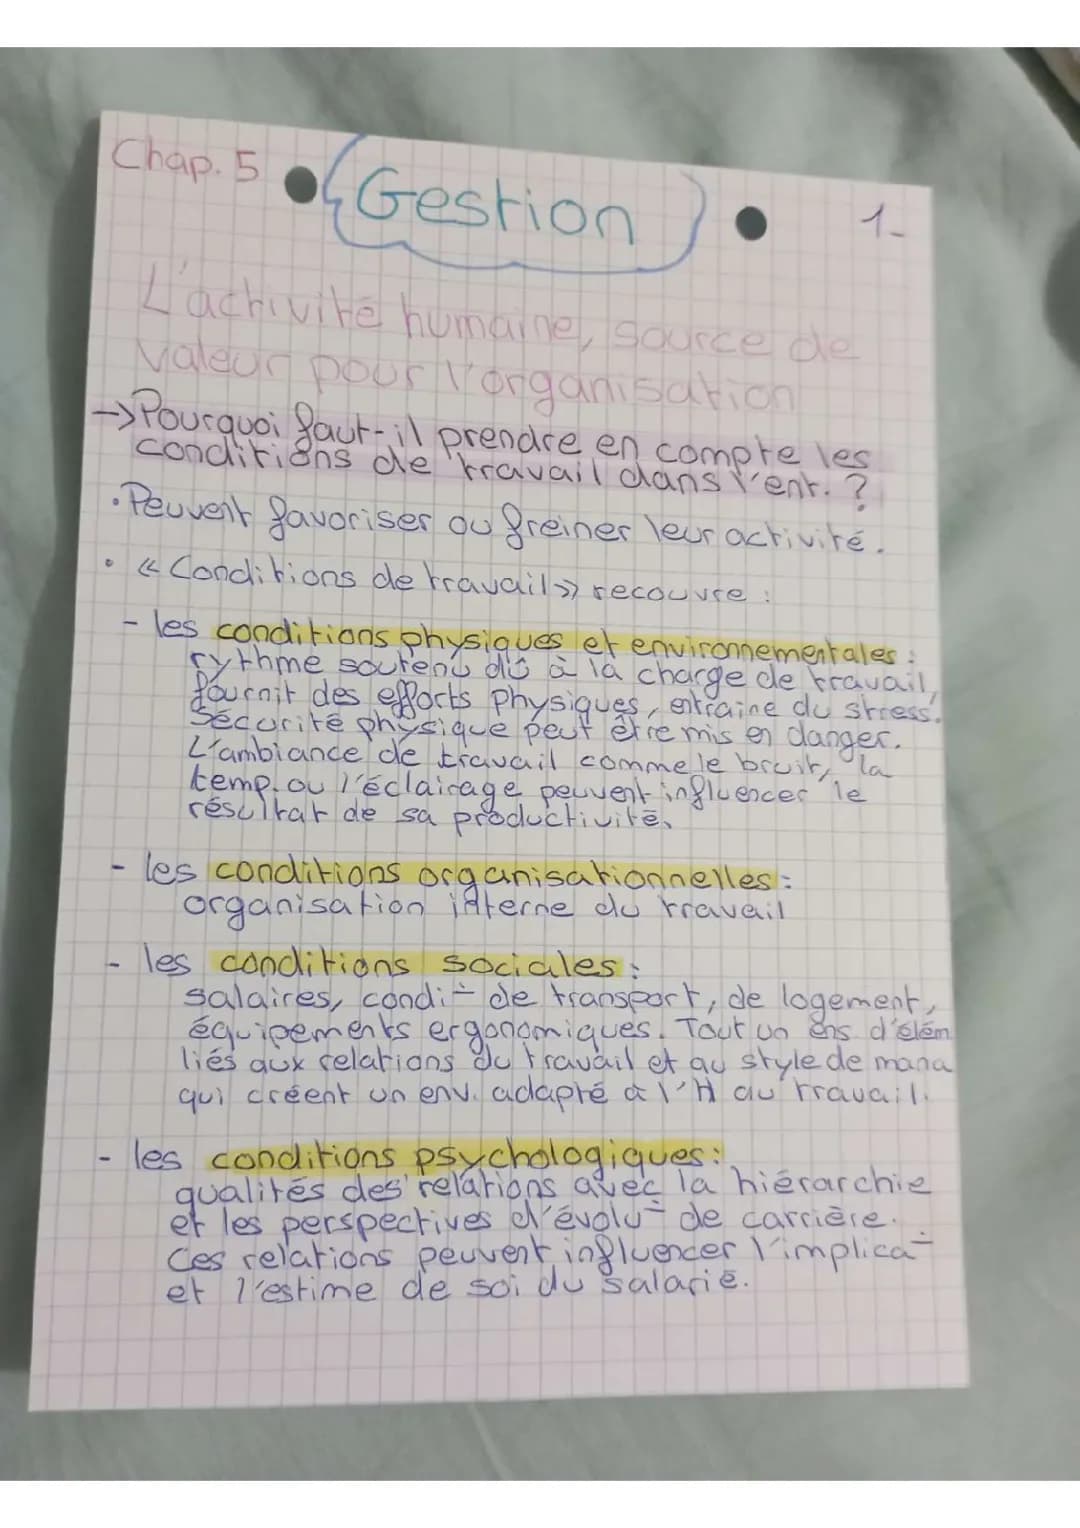 Chap. 5
Gestion
1-
L'activité humaine, source de
valeur pour l'organisation
->Pourquoi faut-il prendre en compte les
conditions de travail dans l'ent. ?
• Peuvent favoriser ou freiner leur activité.
• « Conditions de travail » recouvre :
- les conditions physiques et environnementales :
rythme soutenu dû à la charge de travail,
fournit des efforts physiques, entraine du stress.
Sécurité physique peut être mis en danger.
L'ambiance de travail comme le bruit, la
temp. ou l'éclairage peuvent influencer le
résultat de sa productivité.
- les conditions organisationnelles :
organisation interne du travail
- les conditions sociales :
salaires, condi- de transport, de logement,
équipements ergonomiques. Tout un ens. d'élém
liés aux relations du travail et au style de mana
qui créent un env. adapté à l'H au travail.
- les conditions psychologiques :
qualités des relations avec la hiérarchie
et les perspectives d'évolu- de carrière.
Ces relations peuvent influencer l'implica-
et l'estime de soi du salarié.